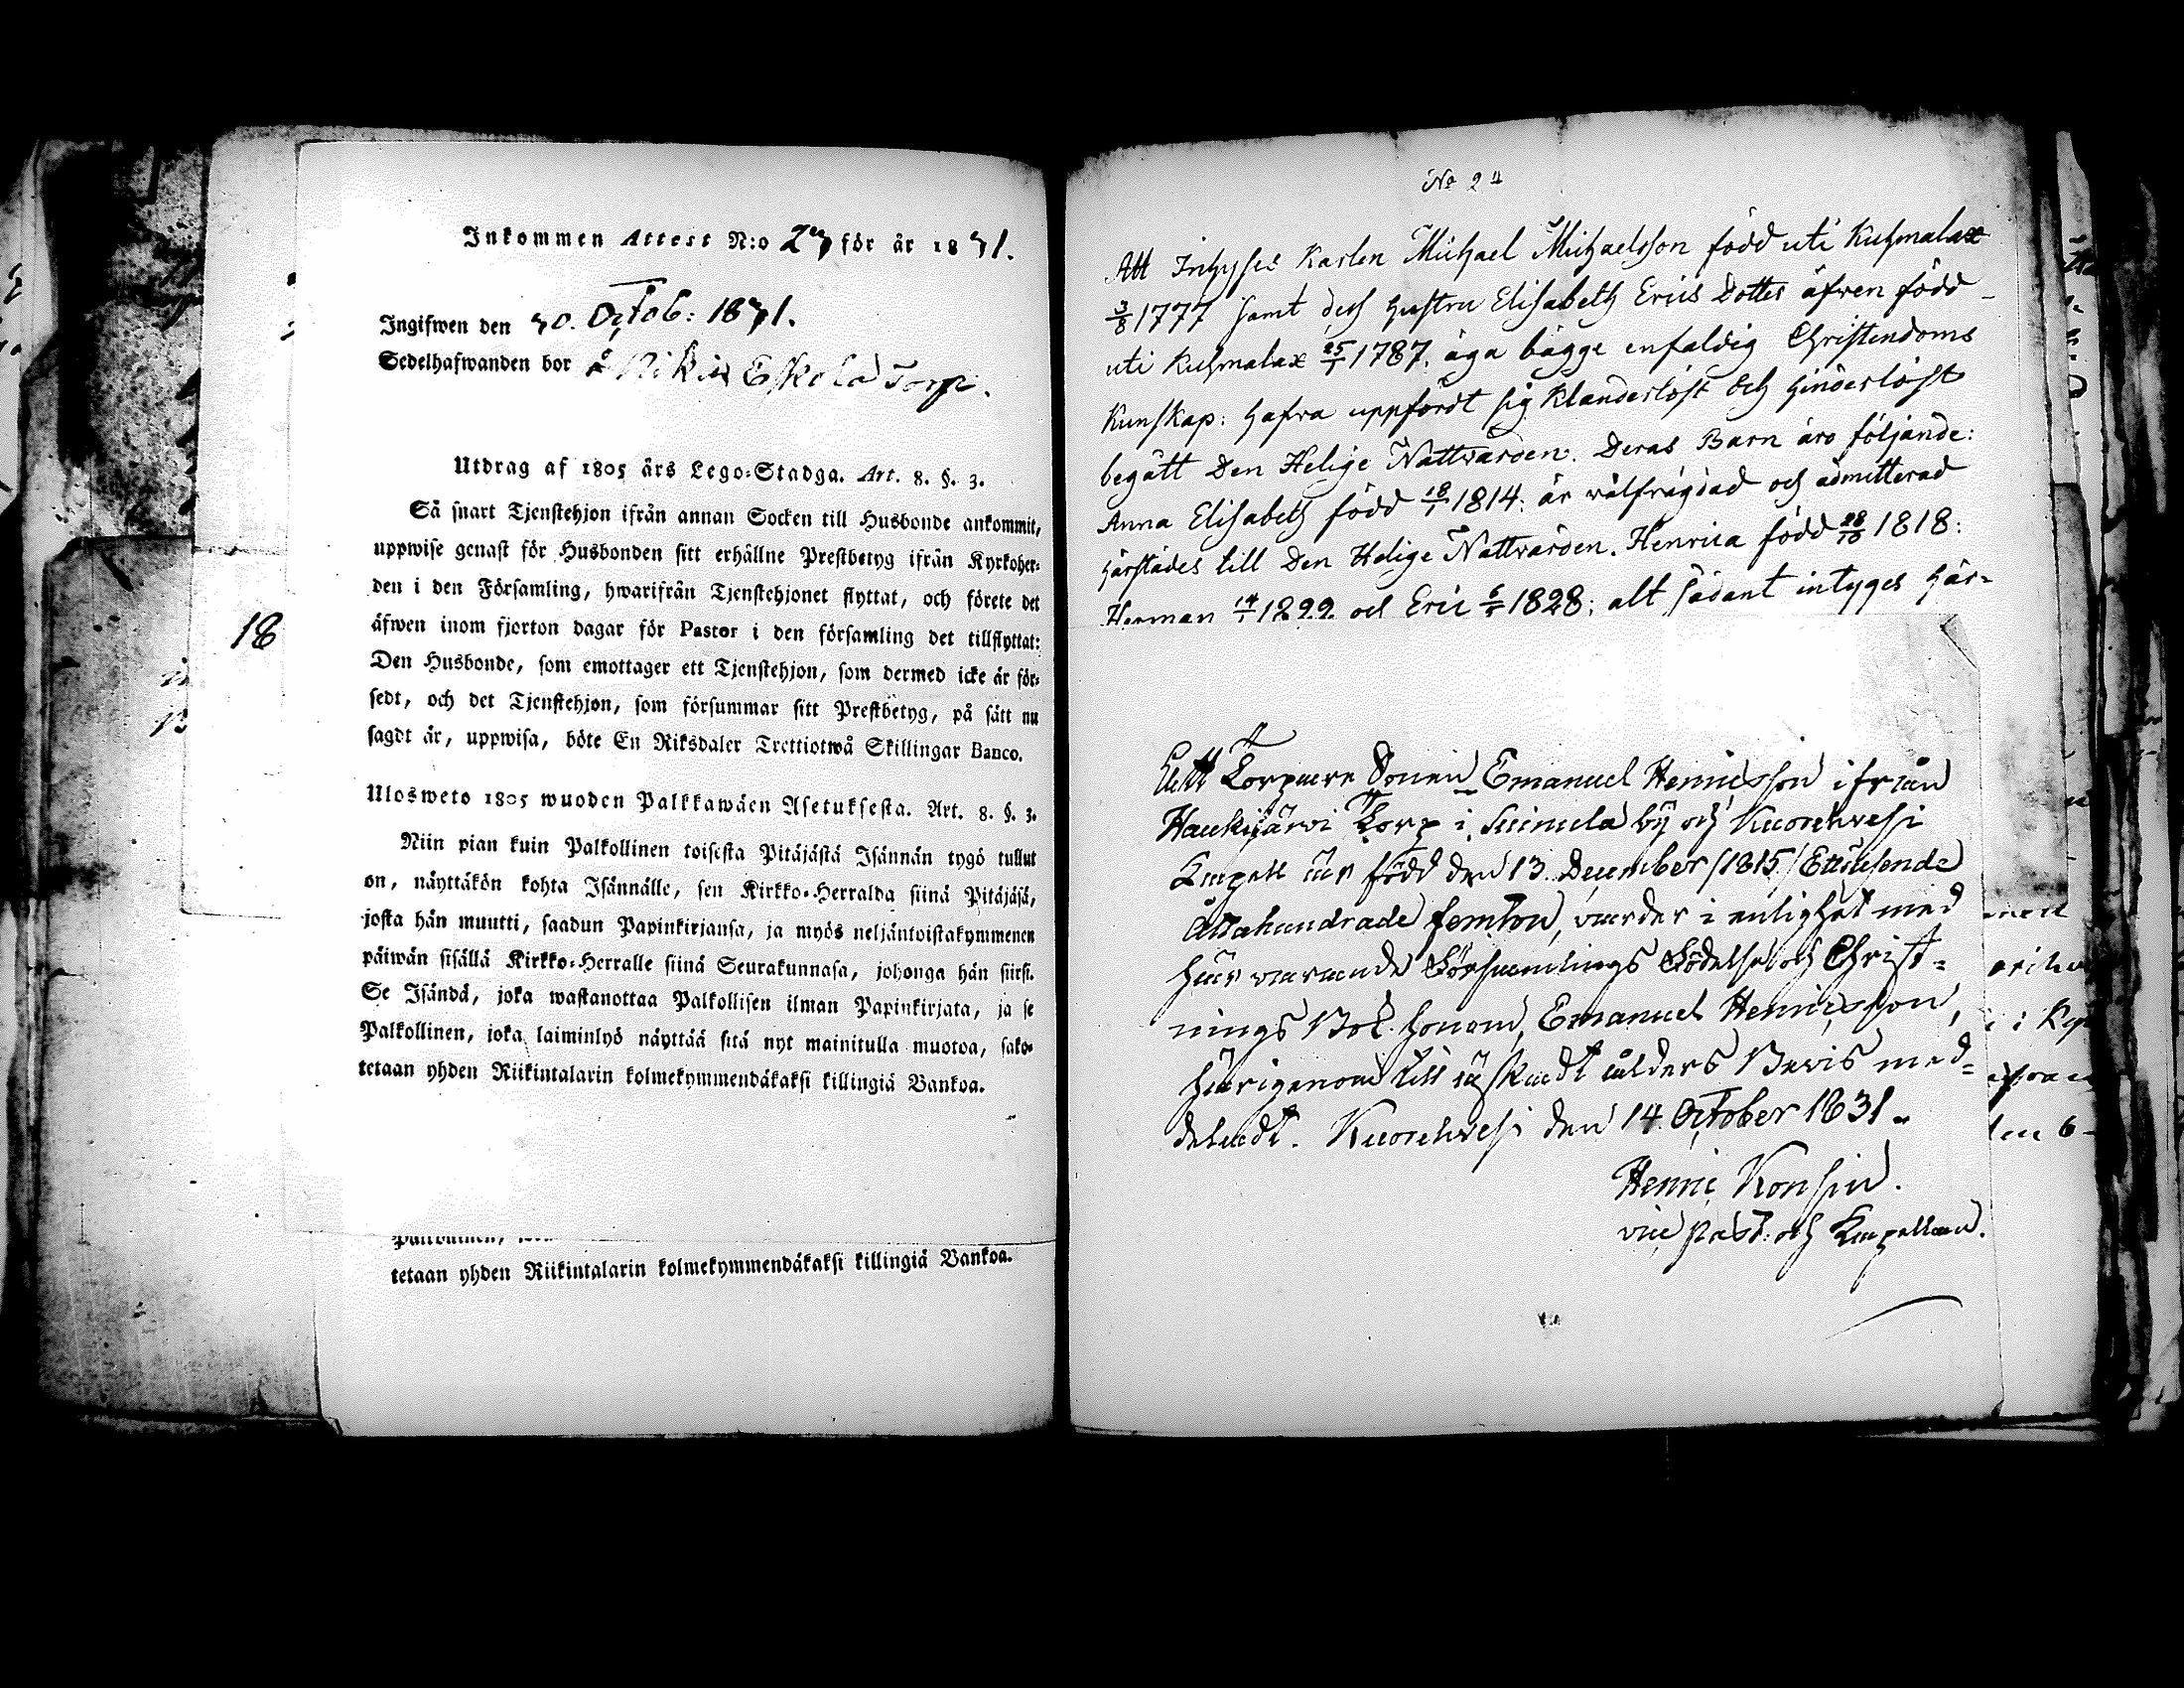 Inkommen Attest N:o 23 för år 1831.
Ingifwen den 30. Octob: 1831.
Sedelhafwanden bor å Eskola Torp.
Utdrag af 1805 års Lego-Stadga. Art. 8. §. 3.
Så snart Tjenstehjon ifrån annan Socken till Husbonde ankommit,
uppwise genast för Husbonden sitt erhållne Prestbetyg ifrån Kyrkoher-
den i den Församling, hwarifrån Tjenstehjonet flyttat, och förete det
äfwen inom fjorton dagar för Pastor i den församling det tillflyttat:
Den Husbonde, som emottager ett Tjenstehjon, som dermed icke är för-
sedt, och det Tjenstehjon, som försummar sitt Prestbetyg, på sätt nu
sagdt är, uppwisa, böte En Riksdaler Trettiotwå Skillingar Banco.
Ulosweto 1805 wuoden Palkkawäen Asetuksesta. Art. 8. §. 3.
Niin pian kuin Palkollinen toisesta Pitäjästä Isännän tygö tullut
on, näyttäkön kohta Isännälle, sen Kirkko-Herralda siinä Pitäjäsä,
josta hän muutti, saadun Papinkirjansa, ja myös neljäntoistakymmenen
päiwän sisällä Kirkko-Herralle siinä Seurakunnasa, johonga hän siirsi.
Se Isändä, joka wastanottaa Palkollisen ilman Papinkirjata, ja se
Palkollinen, joka laiminlyö näyttää sitä nyt mainitulla muotoa, sako-
tetaan yhden Riikintalarin kolmekymmendäkaksi killingiä Bankoa.
tetaan yhden Riikintalarin kolmekymmendäkaksi killingiä Bankoa.
18
No 24
Att Inhyses Karlen Michael Michaelsson född uti Kuhmalax
3/8 1777 samt dess hustru Elisabeth Erics Dotter äfven född
uti Kuhmalax 25/1 1787. äga bägge enfaldig Christendoms
Kunskap: hafva uppfördt sig Klanderlöst och hinderlöst
begått Den Helige Nattvarden. Deras Barn äro följande:
Anna Elisabeth född 18/1 1814: är välfrägdad och admitterad
härstädes till Den Helige Nattvarden. Henrica född 28/10 1818:
Herman 14/1 1822 och Eric 6/5 1828; alt sådant intyges här-
Att Torpare Sonen Emanuel Henricsson ifrån
Haukijärvi Torp i Suinula by och Kuorehvesi
Capell är född den 13 December /1815/ Ettusende
Åttahundrade femton, varder i enlighet med
här varande Församlings Födelse och Christ-
nings Bok honom, Emanuel Henricsson,
härigenom till äskadt ålders Bevis med-
deladt. Kuorehvesi den 14 October 1831.
Henric Konsin.
vice Past: och Capellan.